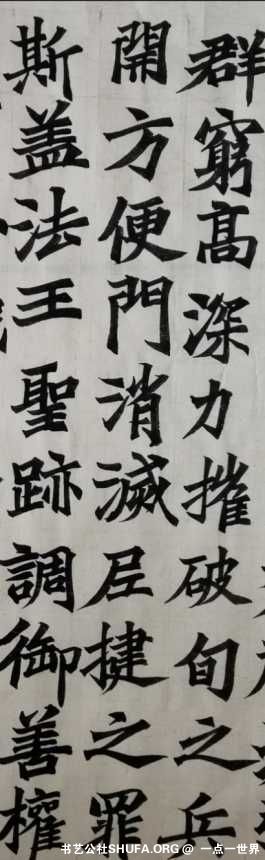 群窮高深力摧破旬之兵
開方便門消滅㞾揵之罪
斯盖法王聖跡調御善權
书艺公社SHUFA.ORG @ 一点一世界